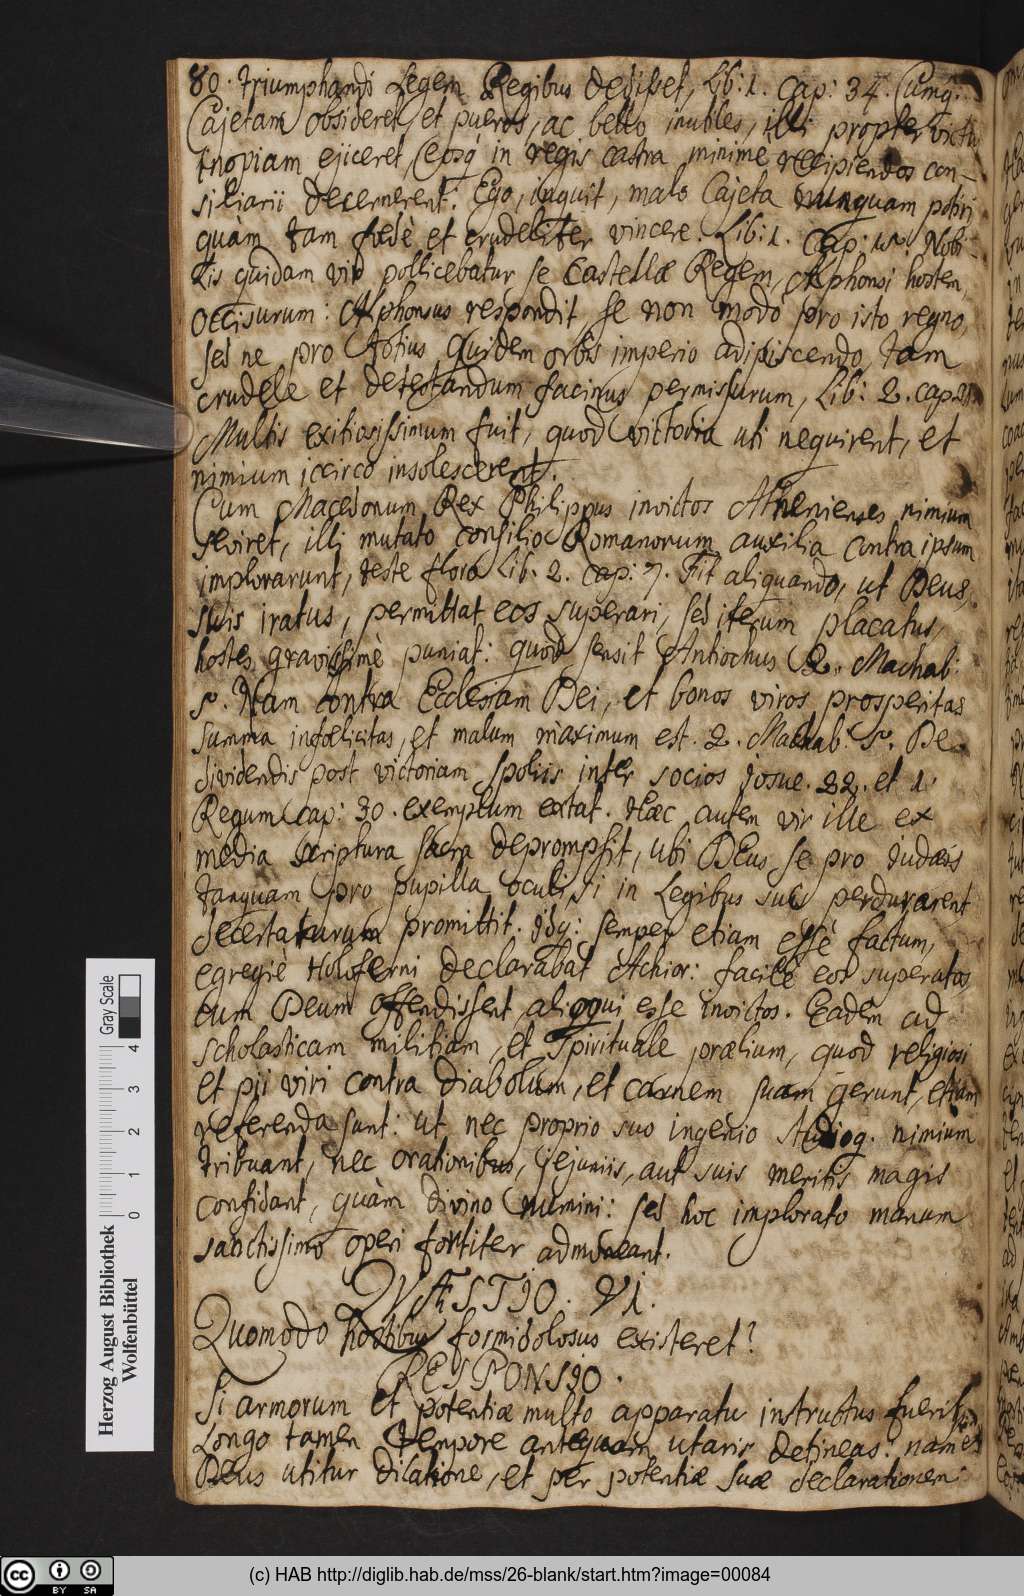 80. triumphandi Legem Regibus dedisset, Lib: 1. Cap: 34. Cumq̃.
Cajetam obsideret, et pueros, ac bello inutiles, illi propter victu
inopiam ejiceret, eosq̃ in regis castra minime recipiendos con-
siliarii decernerent: Ego, inquit, malo Cajeta nunquam potiri
quam tam fœdè et crudeliter vincere. Lib: 1. Cap: Nobi-
lis quidam vir pollicebatur se Castellæ Regem, Alphonsi hostem,
occisurum: Alphonsus respondit, se non modò pro isto regno,
sed ne pro totius quidem orbis imperio adipiscendo, tam
crudele et detestandum facinus permissurum, Lib: 2. cap
Multis exitiosissimum fuit, quod victoria uti nequirent, et
nimium iccirco insolescerent.
Cum Macedonum Rex Philippus invictos Athenienses nimium
seviret, illi mutato consilio Romanorum auxilia contra ipsum
implorarunt, teste floro Lib. 2. cap: 7. Fit aliquando, ut Deus,
suis iratus, permittat eos superari, sed iterum placatus,
hostes gravissimè puniat: quod sensit Antiochus 2. Machab:
5. Nam contra Ecclesiam Dei, et bonos viros prosperitas
summa infœlicitas, et malum màximum est. 2. Machab: 5. De
dividendis post victoriam spoliis inter socios Josue. 22. et 1.
Regum cap: 30. exemplum extat. Hæc autem vir ille ex
media scriptura sacra deprompsit, ubi DEus se pro Judæis
tanquam pro pupilla oculi si in Legibus suis perdurarent
decertaturum promittit. Idq: semper etiam essè factum,
egregiè Holoferni declarabat Achior: facile eos superatos
cum Deum offendissent, alioqui esse invictos. Eadem ad
scholasticam militiam, et spirituale prælium, quod religiosi
et pii viri contra diabolum, et carnem suam gerunt, etiam
referenda sunt: ut nec proprio suo ingenio studioq. nimium
tribuant, nec orationibus, jejuniis, aut suis meritis magis
confidant, quàm divino numini: sed hoc implorato manum
sanctissimo operi fortiter admoveant.
QVÆSTIO. VI.
Quomodo hostibus formidolosus existeret?
RESPONSIO.
Si armorum et potentiæ multo apparatu instructus fueris,
Longo tamen tempore antequam utaris detineas: nam et
Deus utitur dilatione, et per potentiæ suæ declarationem
Herzog August Bibliothek
Wolfenbüttel
0 1 2 3 4
Gray Scale
cc BY SA
(c) HAB http://diglib.hab.de/mss/26-blank/start.htm?image=00084